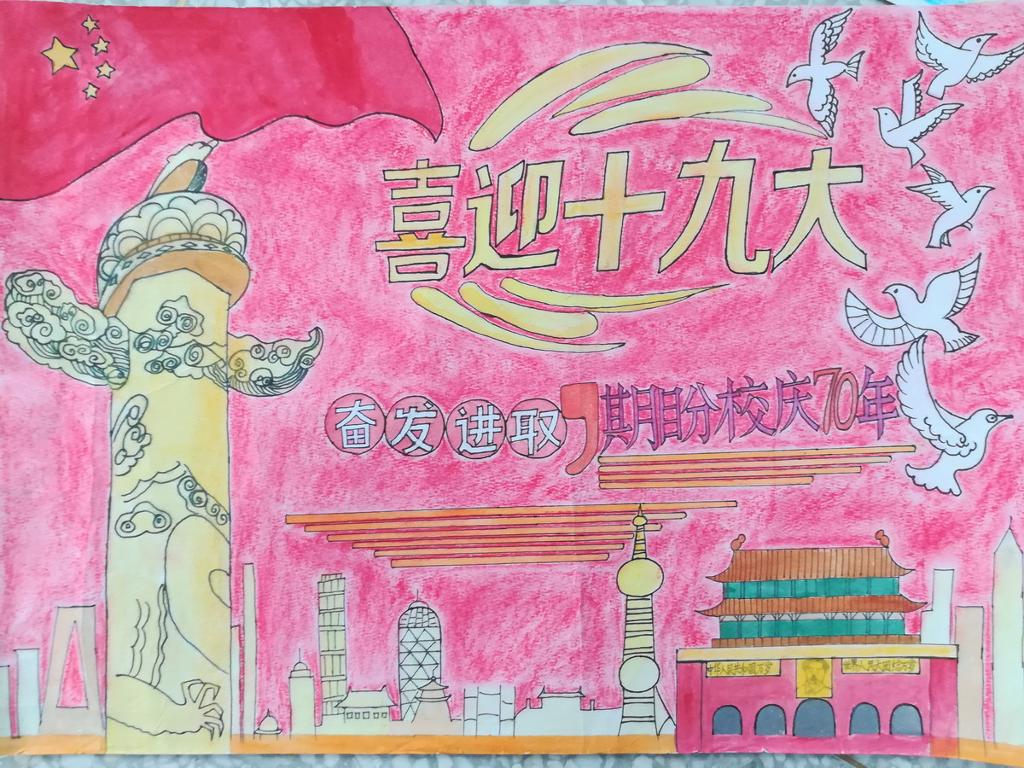 喜迎十九大
奋发进取，期盼校庆70年
中华人民共和国万岁 世界人民大团结万岁